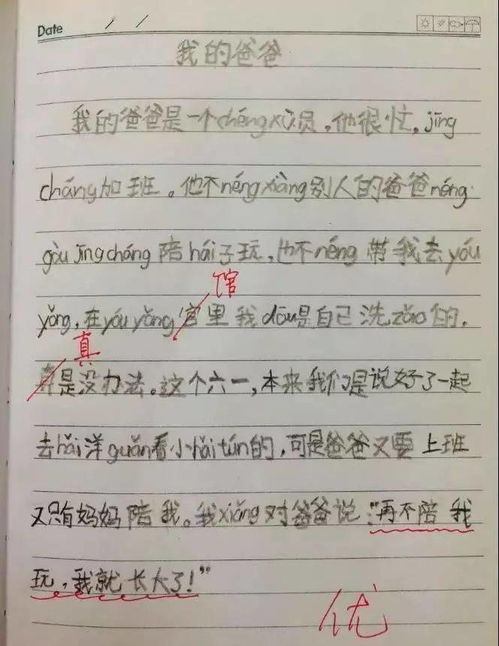 Date / /
我的爸爸
我的爸爸是一个chéngxù员,他很忙。jīng
cháng加班。他不néngxiàng别人的爸爸néng
gòu jīngcháng陪hái子玩,也不néng带我去yóu
馆
yǒng,在yóuyǒng官里我dōu是自己洗zǎo的,
真
是没办法。这个六一,本来我们是说好了一起
去hǎi洋guǎn看小hǎitún的,可是爸爸又要上班
又只有妈妈陪我。我xiǎng对爸爸说:"再不陪我
玩,我就长大了!"
优